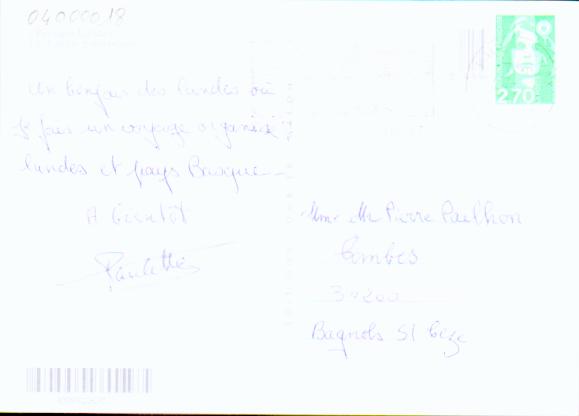 04000018
Un bonjour des landes où
Je fais un voyage organisé
landes et pays Basque
A bientôt
Paulette
2,70
Mme Mr Pierre Paulhon
Combes
30200
Bagnols St Cèze